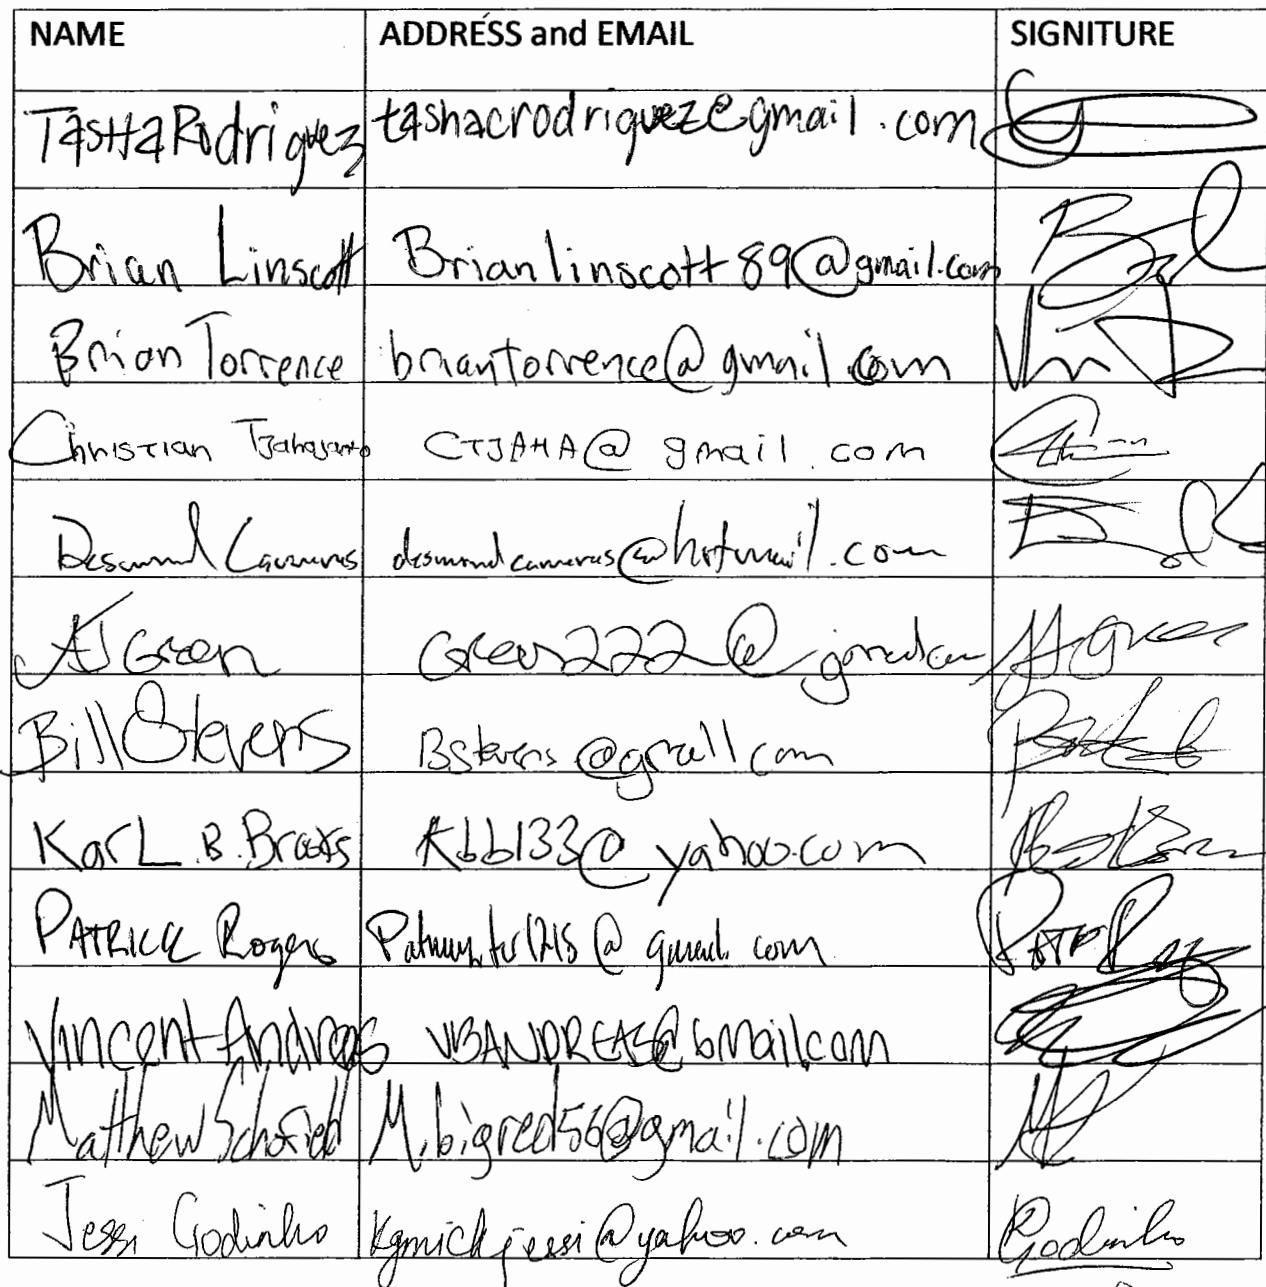 NAME ADDRESS and EMAIL SIGNITURE
Tasha Rodriguez tashacrodriguez@gmail.com
Brian Linscott Brianlinscott89@gmail.com
Brian Torrence briantorrence@gmail.com
Christian CTJAHA@gmail.com
Desmond desmondcameras@hotmail.com
AJ Green AJ Green
Bill Stevens BStevens@gmail com
Karl.B.Brooks Kbb133@yahoo.com
PATRICK Rogers
Vincent Andreas VBANDREAS@Gmail.com
Matthew Schofield M.bigred56@gmail.com
Jessi Godinho Kgmickjessi@yahoo.com Godinho